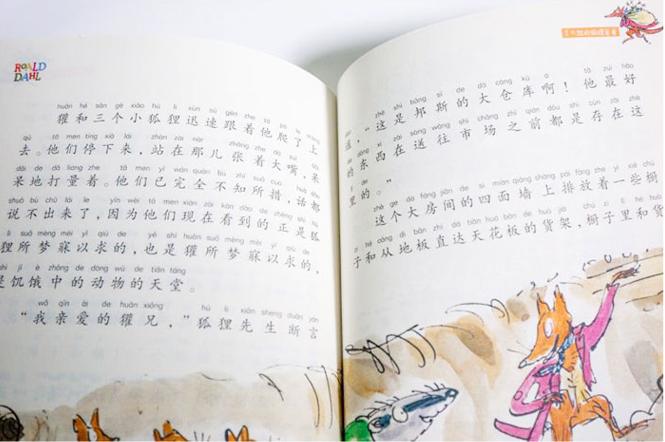 ROALD
DAHL
huān hé sān gè xiǎo hú li xùn sù gēn zhe tā pá le
獾和三个小狐狸迅速跟着他爬了上
qù tā men tíng xià lái zhàn zài
去。他们停下来，站在那儿张着大嘴，呆
dāi de dǎ liang zhe tā men yǐ wán quán bù zhī suǒ cuò huà dōu
呆地打量着。他们已完全不知所措，话都
shuō bù chū lái le yīn wèi tā men xiàn zài kàn dào de zhèng shì
说不出来了，因为他们现在看到的正是狐
li suǒ mèng mèi yǐ qiú de yě shì huān suǒ mèng mèi yǐ qiú de
狸所梦寐以求的，也是獾所梦寐以求的，
shì jī è zhōng de dòng wù de tiān táng
是饥饿中的动物的天堂。
wǒ qīn ài de huān xiōng hú li xiān sheng duàn yán
“我亲爱的獾兄，”狐狸先生断言
了不起的狐狸爸爸
zhè shì bāng sī de dà cāng kù a tā zuì hǎo
道，“这是邦斯的大仓库啊！他最好
xi zài sòng wǎng shì chǎng zhī qián dōu shì cún zài zhè
的东西在送往市场之前都是存在这
里的。”
zhè ge dà fáng jiān de sì miàn qiáng shàng pái fàng zhe yì xiē chú
这个大房间的四面墙上排放着一些橱
zi hé cóng dì bǎn zhí dá tiān huā bǎn de huò jià chú zi lǐ hé huò
子和从地板直达天花板的货架，橱子里和货